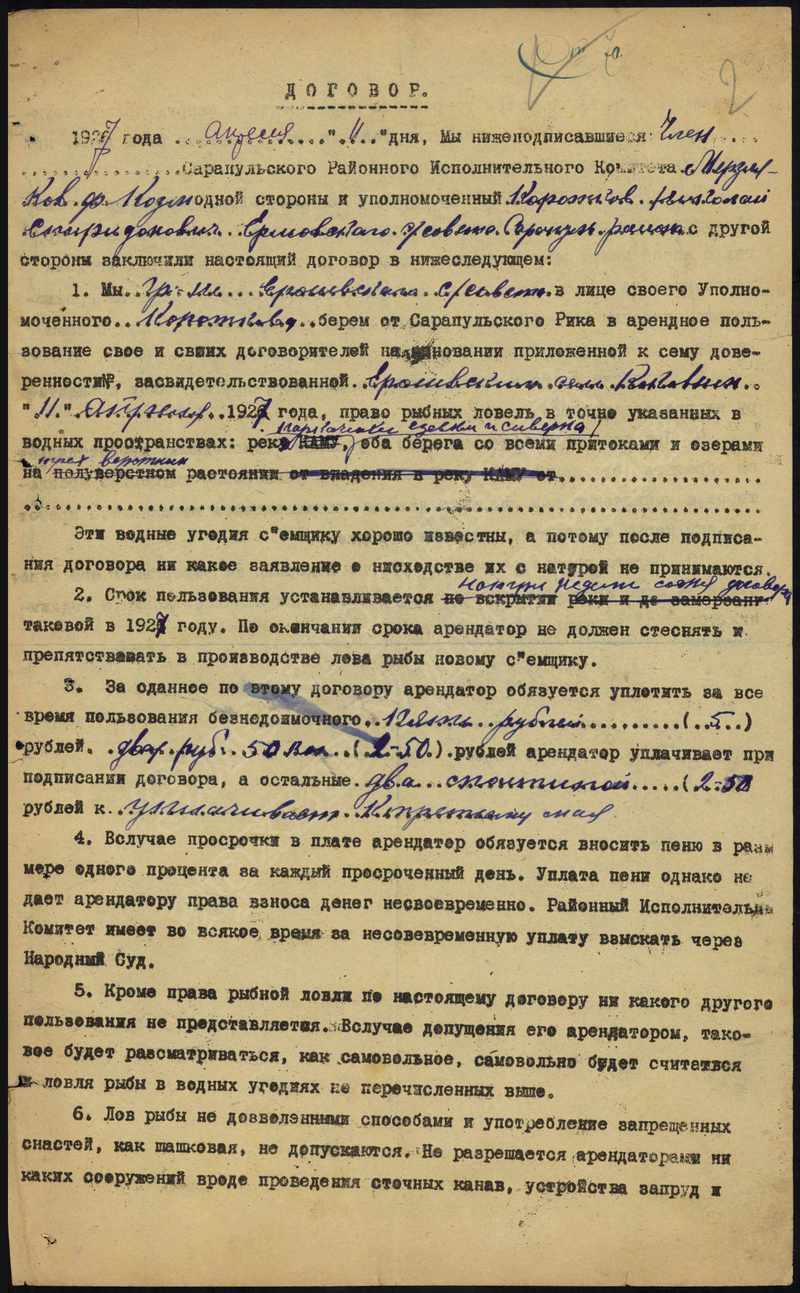 2
ДОГОВОР.
1927 года апреля "11" дня, Мы нижеподписавшиеся Член
Сарапульского Районного Исполнительного Комитета Мерзля-
ков. Ф. Козм одной стороны и уполномоченный Коротков Николай
Спиридонович с другой
стороны заключили настоящий договор в нижеследующем:
1. Мы гр-не в лице своего Уполно-
моченного Короткова берем от Сарапульского Рика в арендное поль-
зование свое и своих договорителей на основании приложенной к сему дове-
ренности, засвидетельствованной
"11" Апреля 1927 года, право рыбных ловель в точно указанных в
водных пространствах: реку КАМУ, оба берега со всеми притоками и озерами
трех верстном
на полуверстном растоянии от впадения в реку КАМУ от
Эти водные угодия с"емщику хорошо известны, а потому после подписа-
ния договора ни какое заявление о нисходстве их с натурой не принимаются.
2. Срок пользования устанавливается по вскрытии реки и до замерзания
таковой в 1927 году. По окончании срока арендатор не должен стеснять и
препятствавать в производстве лова рыбы новому с"емщику.
3. За сданное по этому договору арендатор обязуется уплотить за все
время пользования безнедоимочного Пять рублей (5)
рублей. два руб. 50 коп (2-50) рублей арендатор уплачивает при
подписании договора, а остальные два с полтиной (2-50
рублей к уплачивает к третьему мая
4. Вслучае просрочки в плате арендатор обязуется вносить пеню в раз-
мере одного процента за каждый просроченный день. Уплата пени однако не
дает арендатору права взноса денег несвоевременно. Районный Исполнительный
Комитет имеет во всякое время за несовевременную уплату взыскать через
Народный Суд.
5. Кроме права рыбной ловли по настоящему договору ни какого другого
пользования не представляется. Вслучае допущения его арендатором, тако-
вое будет рассматриваться, как самовольное, самовольно будет считатвся
и ловля рыбы в водных угодиях не перечисленных выше.
6. Лов рыбы не дозволэнными способами и употребление запрещенных
снастей, как шашковая, не допускаются. Не разрешается арендаторами ни
каких сооружений вроде проведения сточных канав, устройства запруд и